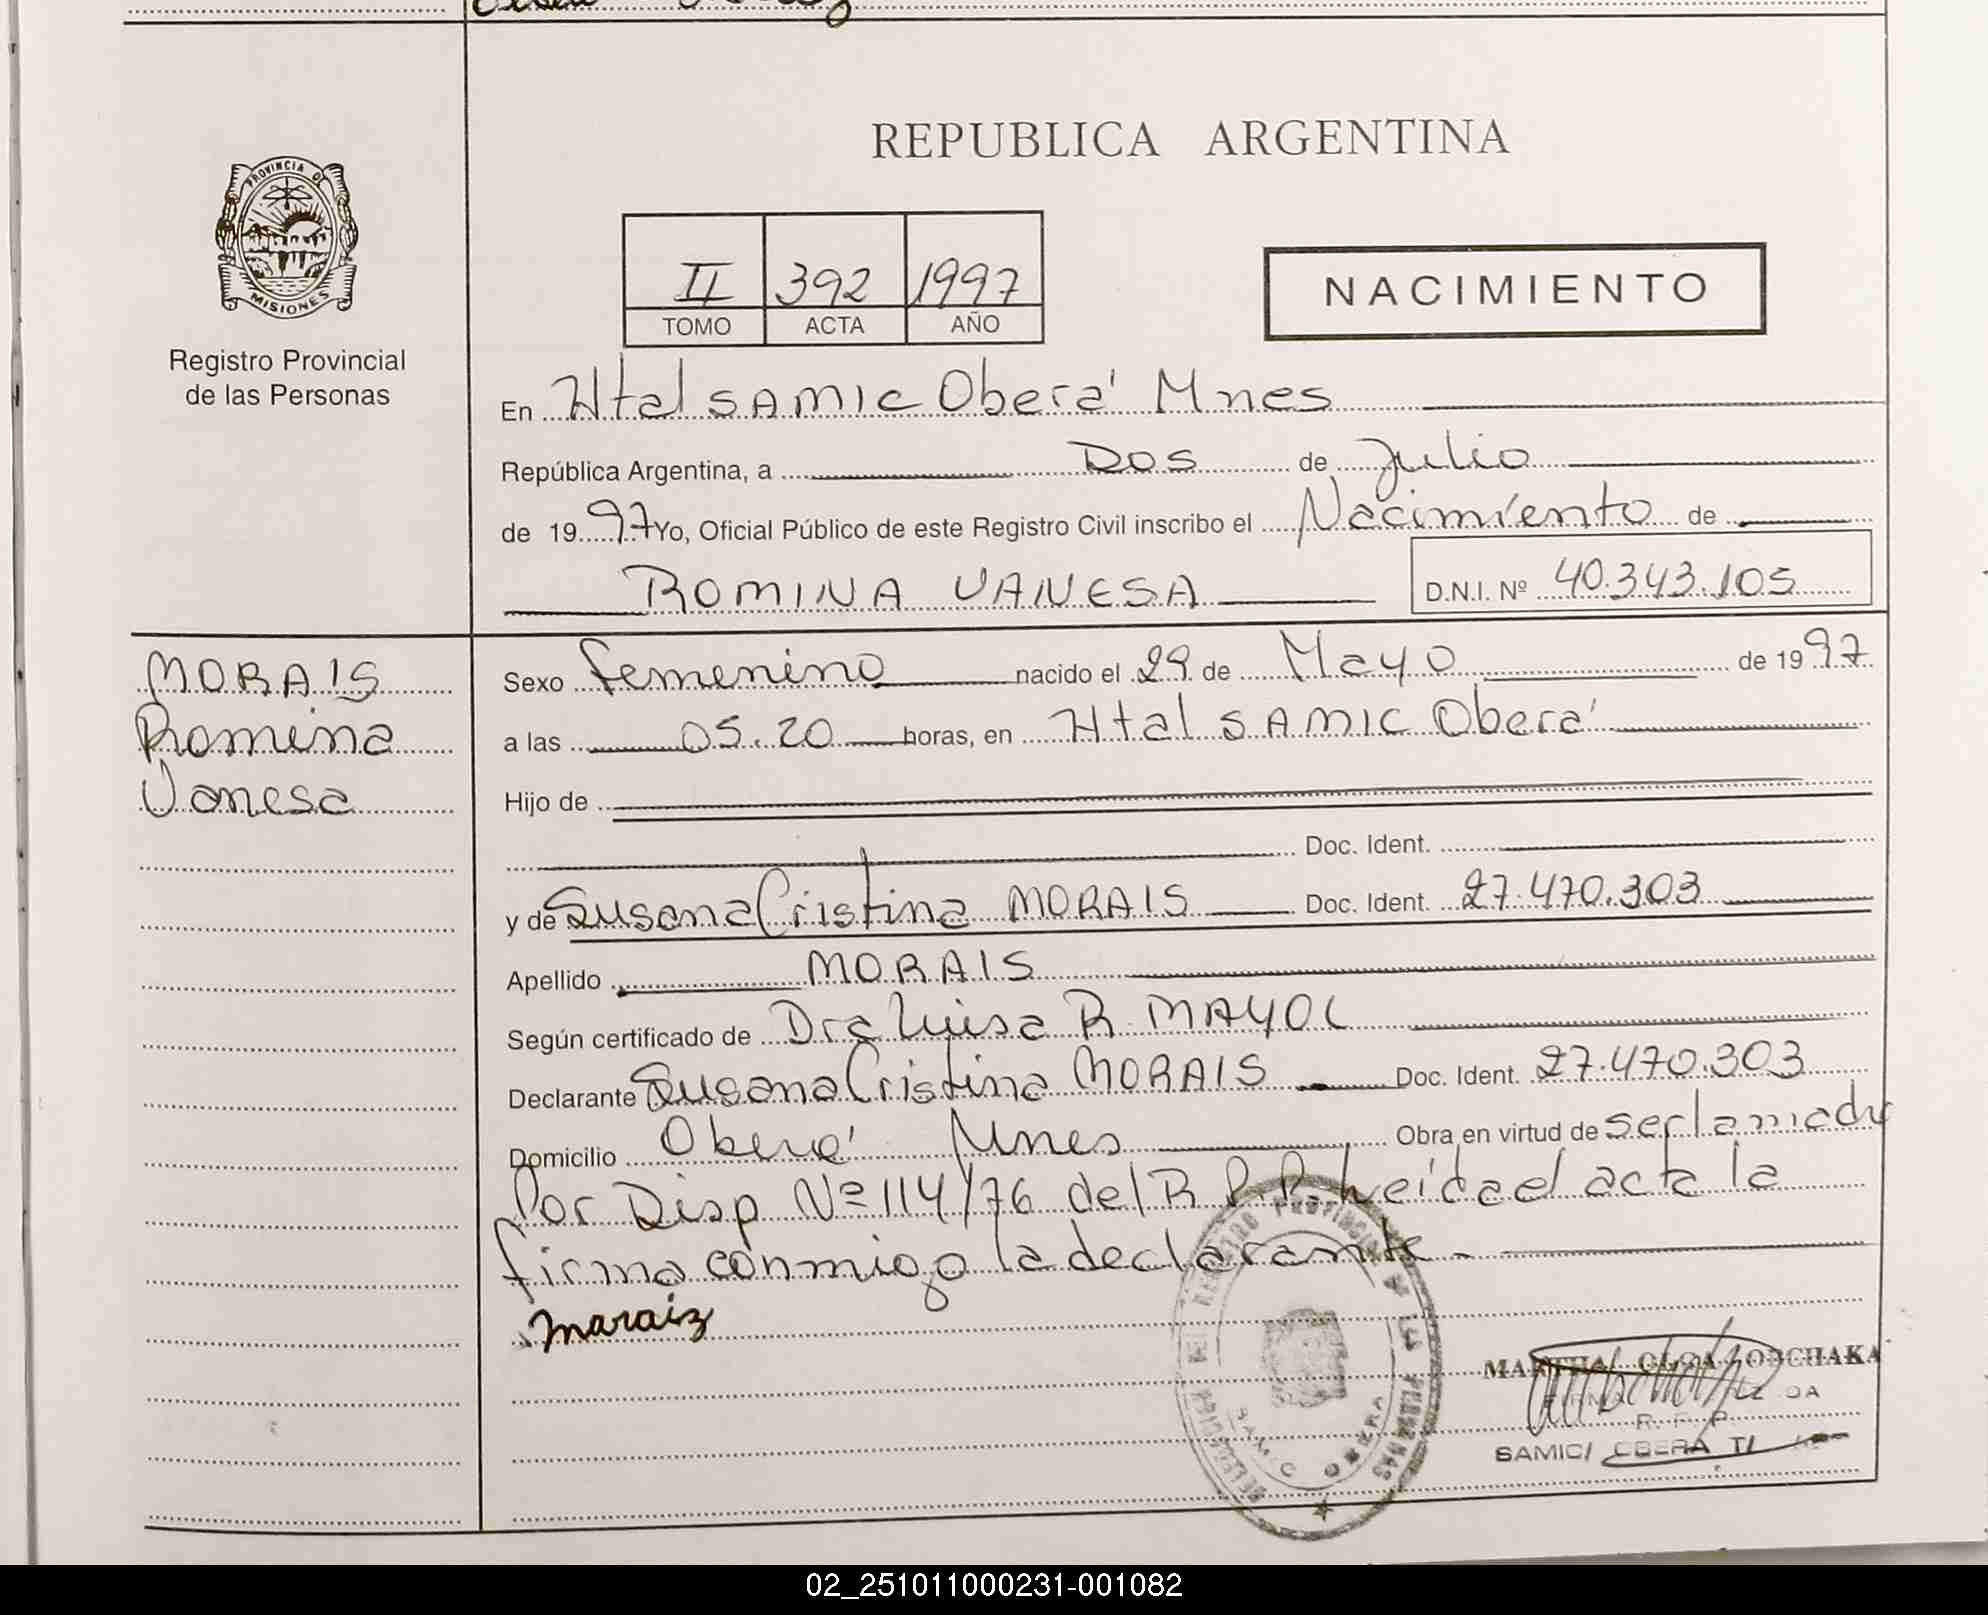 REPUBLICA ARGENTINA
PROVINCIA DE
MISIONES
Registro Provincial
de las Personas
II 392 1997
TOMO ACTA AÑO
NACIMIENTO
En Htal SAMIC Oberá Mnes
República Argentina, a Dos de Julio
de 1997 Yo, Oficial Público de este Registro Civil inscribo el Nacimiento de
ROMINA VANESA D.N.I. Nº 40.343.105
MORAIS
Romina
Vanesa
Sexo femenino nacido el 29 de Mayo de 1997
a las 05.20 horas, en Htal SAMIC Oberá
Hijo de
Doc. Ident.
y de Susana Cristina MORAIS Doc. Ident. 27.470.303
Apellido MORAIS
Según certificado de Dra Luisa R. MAYOL
Declarante Susana Cristina MORAIS Doc. Ident. 27.470.303
Domicilio Oberá Mnes Obra en virtud de ser la madre
Por Disp Nº 114/76 del R.P.P. Leída el acta la
firma conmigo la declarante.
maraiz
REGISTRO PROVINCIAL DE LAS PERSONAS
SAMIC OBERA
MARTHA OLGA
R. P. P.
SAMIC/ OBERA
02_251011000231-001082